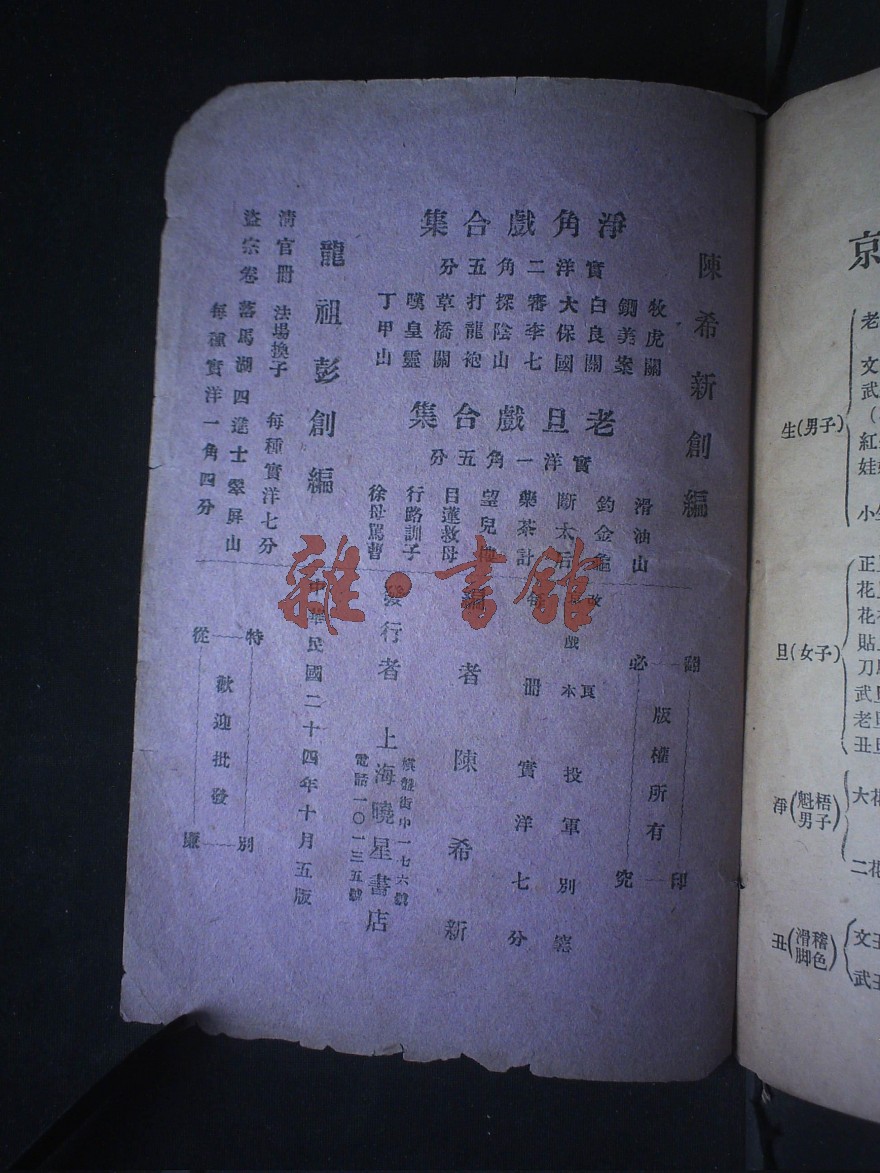 陳希新創編
淨角戲合集
實洋二角五分
牧虎關
鍘美案
白良關
大保國
審李七
探陰山
打龍袍
草橋關
嘆皇靈
丁甲山
老旦戲合集
實洋一角五分
滑油山
釣金龜
斷太后
藥茶計
望兒樓
目蓮救母
行路訓子
徐母罵曹
龍祖彭創編
清官冊 法場換子 每種實洋七分
盜宗卷 落馬湖 四進士 翠屏山
每種實洋一角四分
版權所有
翻印必究
改良
京戲本 投軍別窰
每冊實洋七分
編者 陳希新
發行者 上海曉星書店
棋盤街中一七六號
電話一〇一三五號
中華民國二十四年十月五版
特別從廉
歡迎批發
雜·書館
京
生(男子)
老
文
武
紅
娃
小
旦(女子)
正
花
花
貼
刀
武旦
老旦
丑旦
淨(魁梧男子)
大花
二花
丑(滑稽脚色)
文丑
武丑